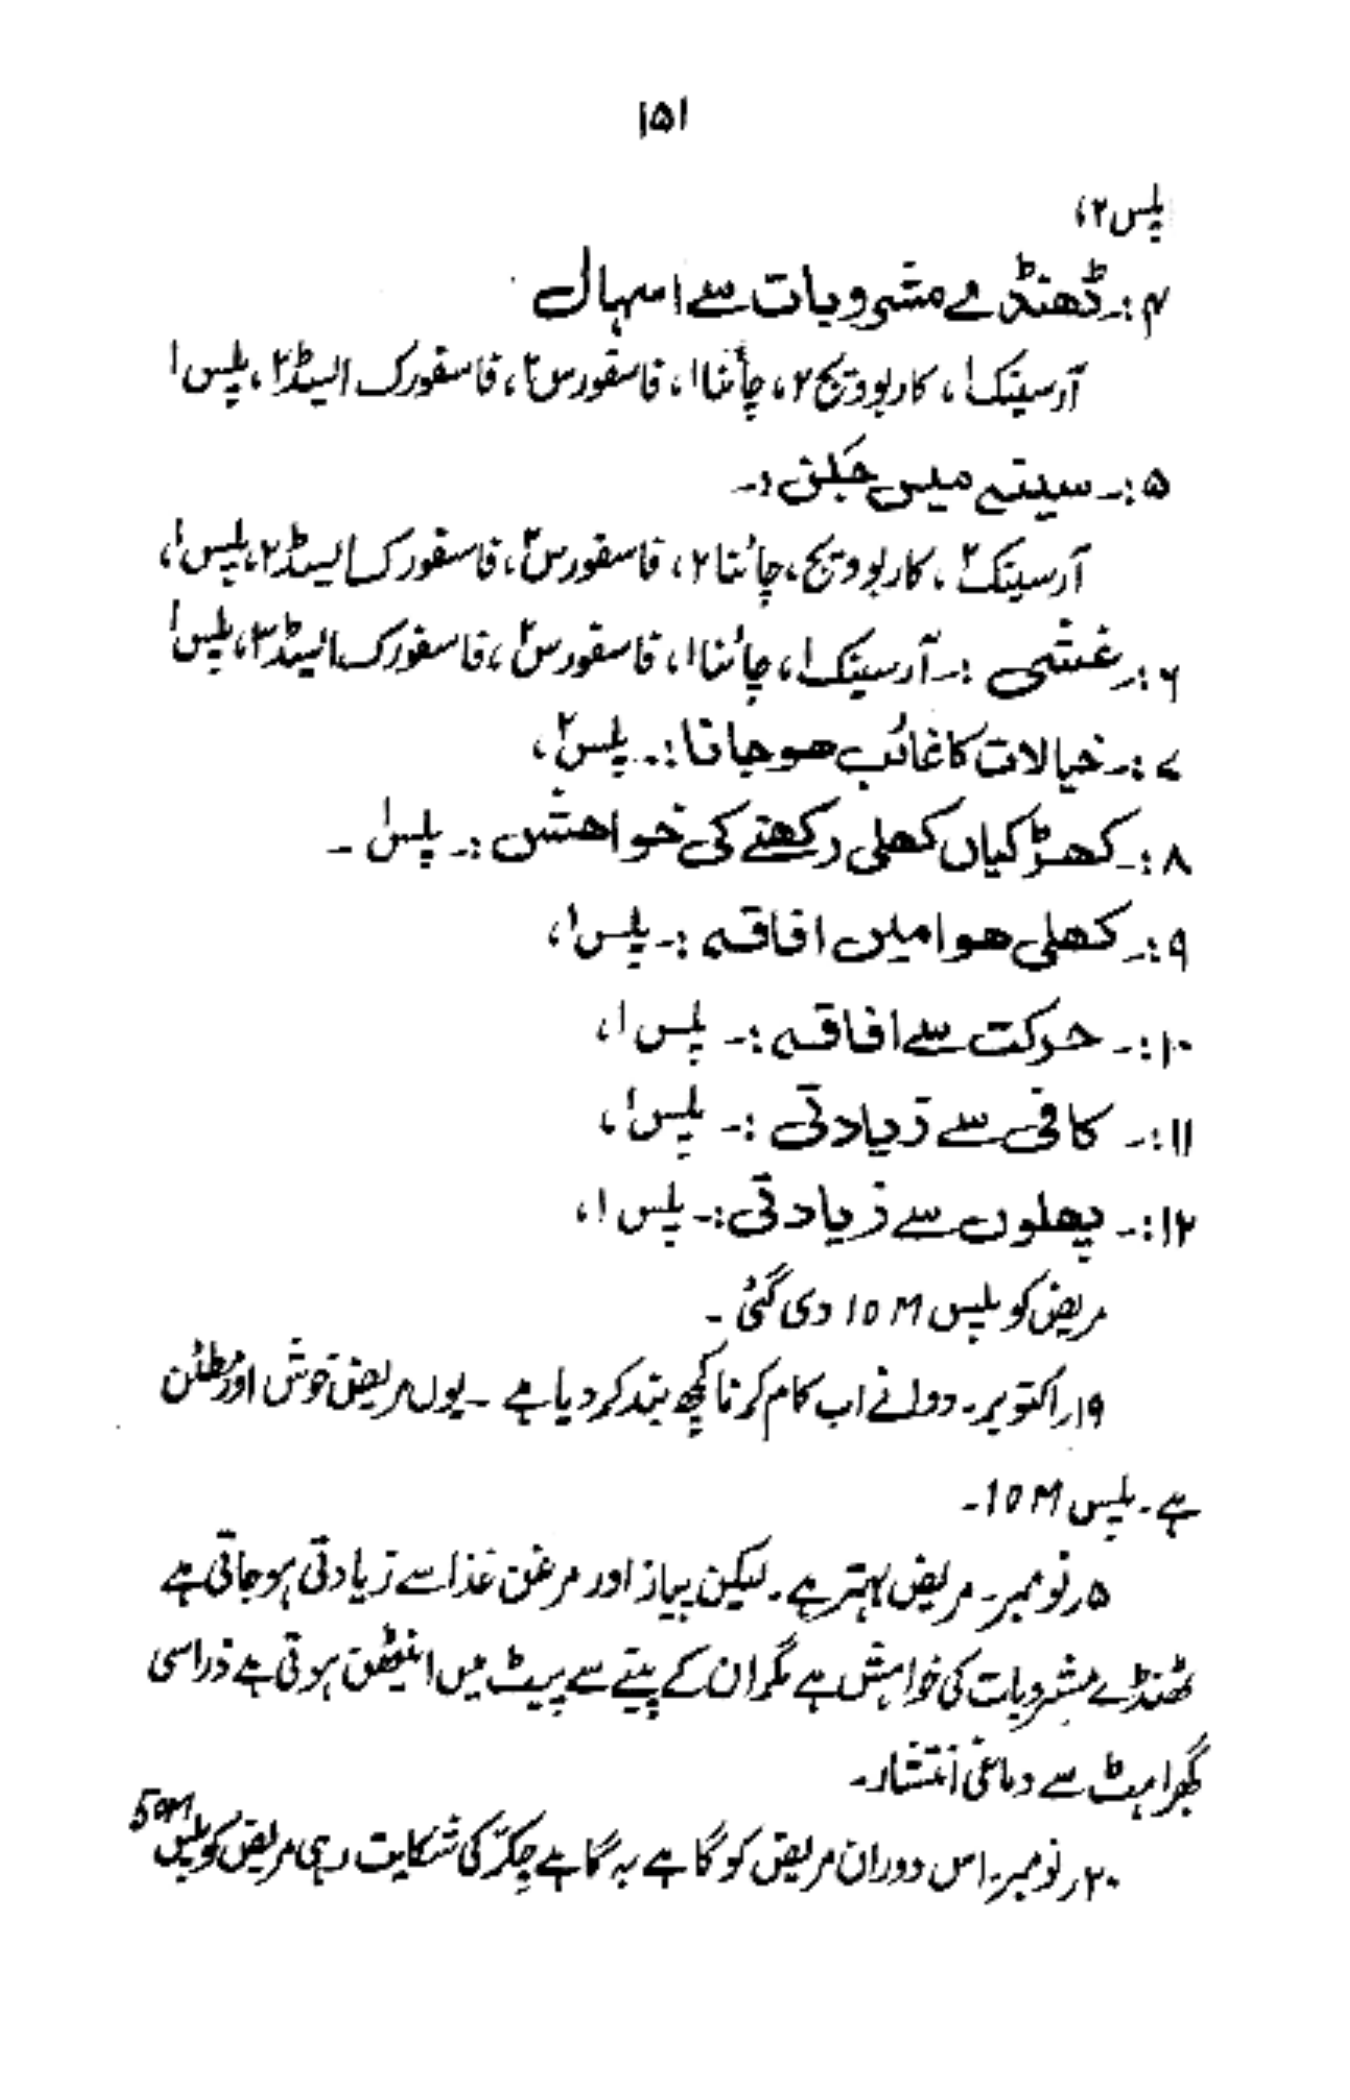 ۱۵۱
پلس ۲،
۴:۔ ٹھنڈے مشروبات سے اسہال
آرسینک ۱، کاربوویج ۲، چائنا ۱، فاسفورس ۲، فاسفورک ایسڈ ۲، پلس ۱
۵:۔ سینے میں جکڑن :۔
آرسینک ۲، کاربوویج، چائنا ۲، فاسفورس ۳، فاسفورک ایسڈ ۲، پلس ۱،
۶:۔ غشی :۔ آرسینک ۱، چائنا ۱، فاسفورس ۲، فاسفورک ایسڈ ۳، پلس ۱
۷:۔ خیالات کا غائب ہو جانا :۔ پلس ۲،
۸:۔ کھڑکیاں کھلی رکھنے کی خواہش :۔ پلس ۱ ۔
۹:۔ کھلی ہوا میں افاقہ :۔ پلس ۱،
۱۰:۔ حرکت سے افاقہ :۔ پلس ۱،
۱۱:۔ کافی سے زیادتی :۔ پلس ۱،
۱۲:۔ پھلوں سے زیادتی :۔ پلس ۱،
مریض کو پلس 10M دی گئی ۔
۱۹؍اکتوبر۔ دوا نے اب کام کرنا کچھ بند کر دیا ہے ۔ یوں مریض خوش اور مطمئن
ہے ۔ پلس 10M۔
۵؍نومبر۔ مریض بہتر ہے ۔ لیکن پیاز اور مرغن غذا سے زیادتی ہو جاتی ہے
ٹھنڈے مشروبات کی خواہش ہے مگر ان کے پینے سے پیٹ میں اینٹھن ہوتی ہے ذرا سی
گھبراہٹ سے دماغی انتشار۔
۲۰؍نومبر۔ اس دوران مریض کو گاہے بہ گاہے چکر کی شکایت رہی مریض کو پلس 50M